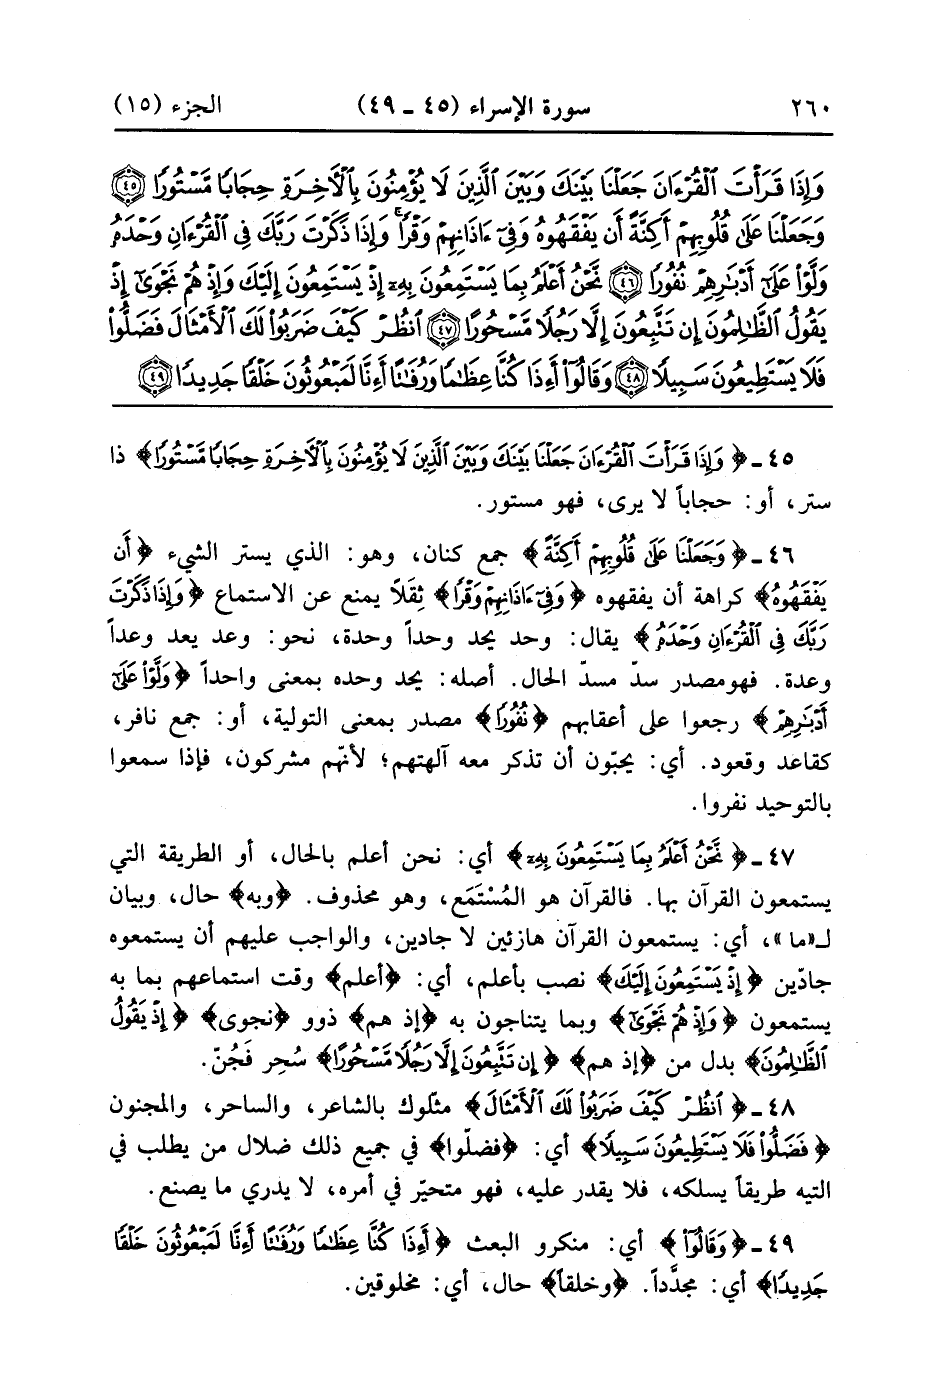 ٢٦٠ سورة الإسراء (٤٥ ـ ٤٩) الجزء (١٥)
وَإِذَا قَرَأْتَ ٱلْقُرْءَانَ جَعَلْنَا بَيْنَكَ وَبَيْنَ ٱلَّذِينَ لَا يُؤْمِنُونَ بِٱلْأَخِرَةِ حِجَابًا مَّسْتُورًا ﴿٤٥﴾
وَجَعَلْنَا عَلَىٰ قُلُوبِهِمْ أَكِنَّةً أَن يَفْقَهُوهُ وَفِىٓ ءَاذَانِهِمْ وَقْرًا ۚ وَإِذَا ذَكَرْتَ رَبَّكَ فِى ٱلْقُرْءَانِ وَحْدَهُۥ
وَلَّوْا۟ عَلَىٰٓ أَدْبَٰرِهِمْ نُفُورًا ﴿٤٦﴾ نَّحْنُ أَعْلَمُ بِمَا يَسْتَمِعُونَ بِهِۦٓ إِذْ يَسْتَمِعُونَ إِلَيْكَ وَإِذْ هُمْ نَجْوَىٰٓ إِذْ
يَقُولُ ٱلظَّٰلِمُونَ إِن تَتَّبِعُونَ إِلَّا رَجُلًا مَّسْحُورًا ﴿٤٧﴾ ٱنظُرْ كَيْفَ ضَرَبُوا۟ لَكَ ٱلْأَمْثَالَ فَضَلُّوا۟
فَلَا يَسْتَطِيعُونَ سَبِيلًا ﴿٤٨﴾ وَقَالُوٓا۟ أَءِذَا كُنَّا عِظَٰمًا وَرُفَٰتًا أَءِنَّا لَمَبْعُوثُونَ خَلْقًا جَدِيدًا ﴿٤٩﴾
٤٥ ـ ﴿وَإِذَا قَرَأْتَ ٱلْقُرْءَانَ جَعَلْنَا بَيْنَكَ وَبَيْنَ ٱلَّذِينَ لَا يُؤْمِنُونَ بِٱلْأَخِرَةِ حِجَابًا مَّسْتُورًا﴾ ذا
ستر، أو: حجاباً لا يرى، فهو مستور.
٤٦ ـ ﴿وَجَعَلْنَا عَلَىٰ قُلُوبِهِمْ أَكِنَّةً﴾ جمع كنان، وهو: الذي يستر الشيء ﴿أَن
يَفْقَهُوهُ﴾ كراهة أن يفقهوه ﴿وَفِىٓ ءَاذَانِهِمْ وَقْرًا﴾ ثِقَلاً يمنع عن الاستماع ﴿وَإِذَا ذَكَرْتَ
رَبَّكَ فِى ٱلْقُرْءَانِ وَحْدَهُۥ﴾ يقال: وحد يحد وحداً وحدة، نحو: وعد يعد وعداً
وعدة. فهومصدر سدّ مسدّ الحال. أصله: يحد وحده بمعنى واحداً ﴿وَلَّوْا۟ عَلَىٰٓ
أَدْبَٰرِهِمْ﴾ رجعوا على أعقابهم ﴿نُفُورًا﴾ مصدر بمعنى التولية، أو: جمع نافر،
كقاعد وقعود. أي: يحبّون أن تذكر معه آلهتهم؛ لأنّهم مشركون، فإذا سمعوا
بالتوحيد نفروا.
٤٧ ـ ﴿نَّحْنُ أَعْلَمُ بِمَا يَسْتَمِعُونَ بِهِۦٓ﴾ أي: نحن أعلم بالحال، أو الطريقة التي
يستمعون القرآن بها. فالقرآن هو المُسْتَمَع، وهو محذوف. ﴿وبه﴾ حال، وبيان
لـ«ما»، أي: يستمعون القرآن هازئين لا جادين، والواجب عليهم أن يستمعوه
جادّين ﴿إِذْ يَسْتَمِعُونَ إِلَيْكَ﴾ نصب بأعلم، أي: ﴿أعلم﴾ وقت استماعهم بما به
يستمعون ﴿وَإِذْ هُمْ نَجْوَىٰٓ﴾ وبما يتناجون به ﴿إذ هم﴾ ذوو ﴿نجوى﴾ ﴿إِذْ يَقُولُ
ٱلظَّٰلِمُونَ﴾ بدل من ﴿إذ هم﴾ ﴿إِن تَتَّبِعُونَ إِلَّا رَجُلًا مَّسْحُورًا﴾ سُحِر فَجُنّ.
٤٨ ـ ﴿ٱنظُرْ كَيْفَ ضَرَبُوا۟ لَكَ ٱلْأَمْثَالَ﴾ مثلوك بالشاعر، والساحر، والمجنون
﴿فَضَلُّوا۟ فَلَا يَسْتَطِيعُونَ سَبِيلًا﴾ أي: ﴿فضلّوا﴾ في جميع ذلك ضلال من يطلب في
التيه طريقاً يسلكه، فلا يقدر عليه، فهو متحيّر في أمره، لا يدري ما يصنع.
٤٩ ـ ﴿وَقَالُوٓا۟﴾ أي: منكرو البعث ﴿أَءِذَا كُنَّا عِظَٰمًا وَرُفَٰتًا أَءِنَّا لَمَبْعُوثُونَ خَلْقًا
جَدِيدًا﴾ أي: مجدَّداً. ﴿وخلقاً﴾ حال، أي: مخلوقين.